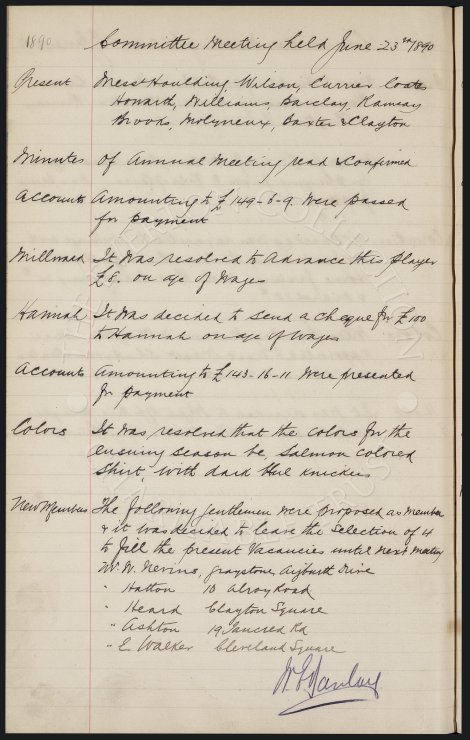 1890 Committee Meeting held June 23rd/1890
Present Messrs Houlding, Wilson, Currier Coates
Howarth, Williams, Barclay, Ramsay
Brooks, Molyneux, Baxter & Clayton
Minutes of Annual Meeting read & confirmed
Accounts Amounting to £149-6-9 were passed
for payment
Millward It was resolved to advance this player
£6. on a/c of Wages
Hannah It was decided to send a cheque for £100
to Hannah on a/c of Wages
Accounts Amounting to £143-16-11 were presented
for payment
Colors It was resolved that the colors for the
ensuing season be, Salmon colored
Shirt, with dark blue knickers
New Members The following gentlemen were proposed as Member
& it was decided to leave the Selection of 4
to fill the present Vacancies until next meeting
Mr. W. Nevins, Graystone, Aigburth Drive
" Hatton 10 Alroy Road
" Heard Clayton Square
" Ashton 19 Tancred Rd
" E. Walker Cleveland Square
Barclay